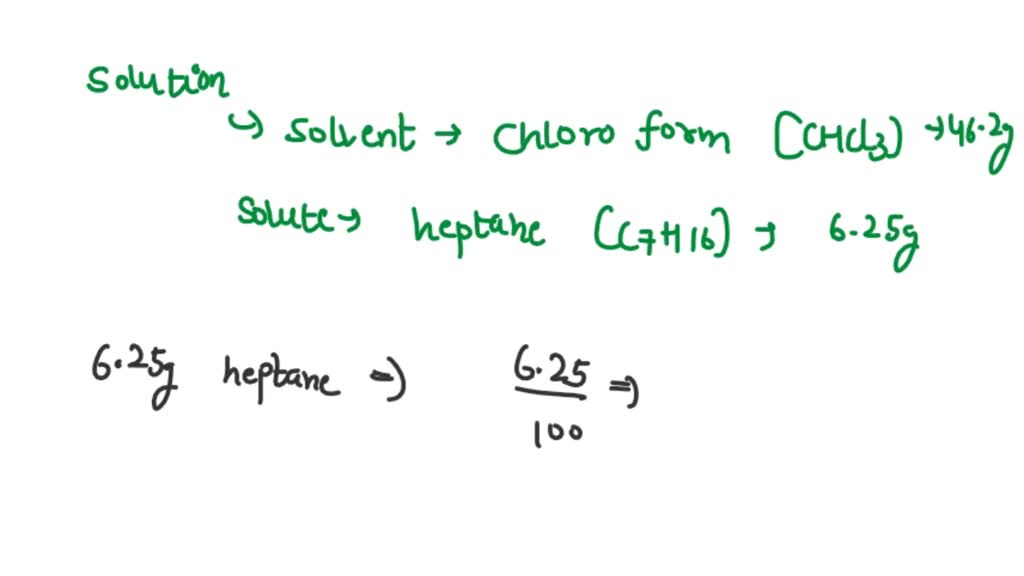 Solution
↳ Solvent → Chloro form [CHCl3) → 46.2g
Solute → heptane (C7H16) → 6.25g
6.25g heptane ⇒ 6.25 ⇒
100